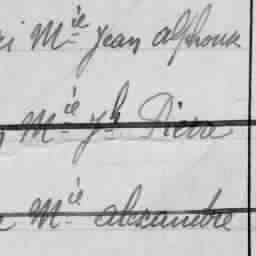 Mie Jean Alphonse
Mie Jh Pierre
Mie alexandre